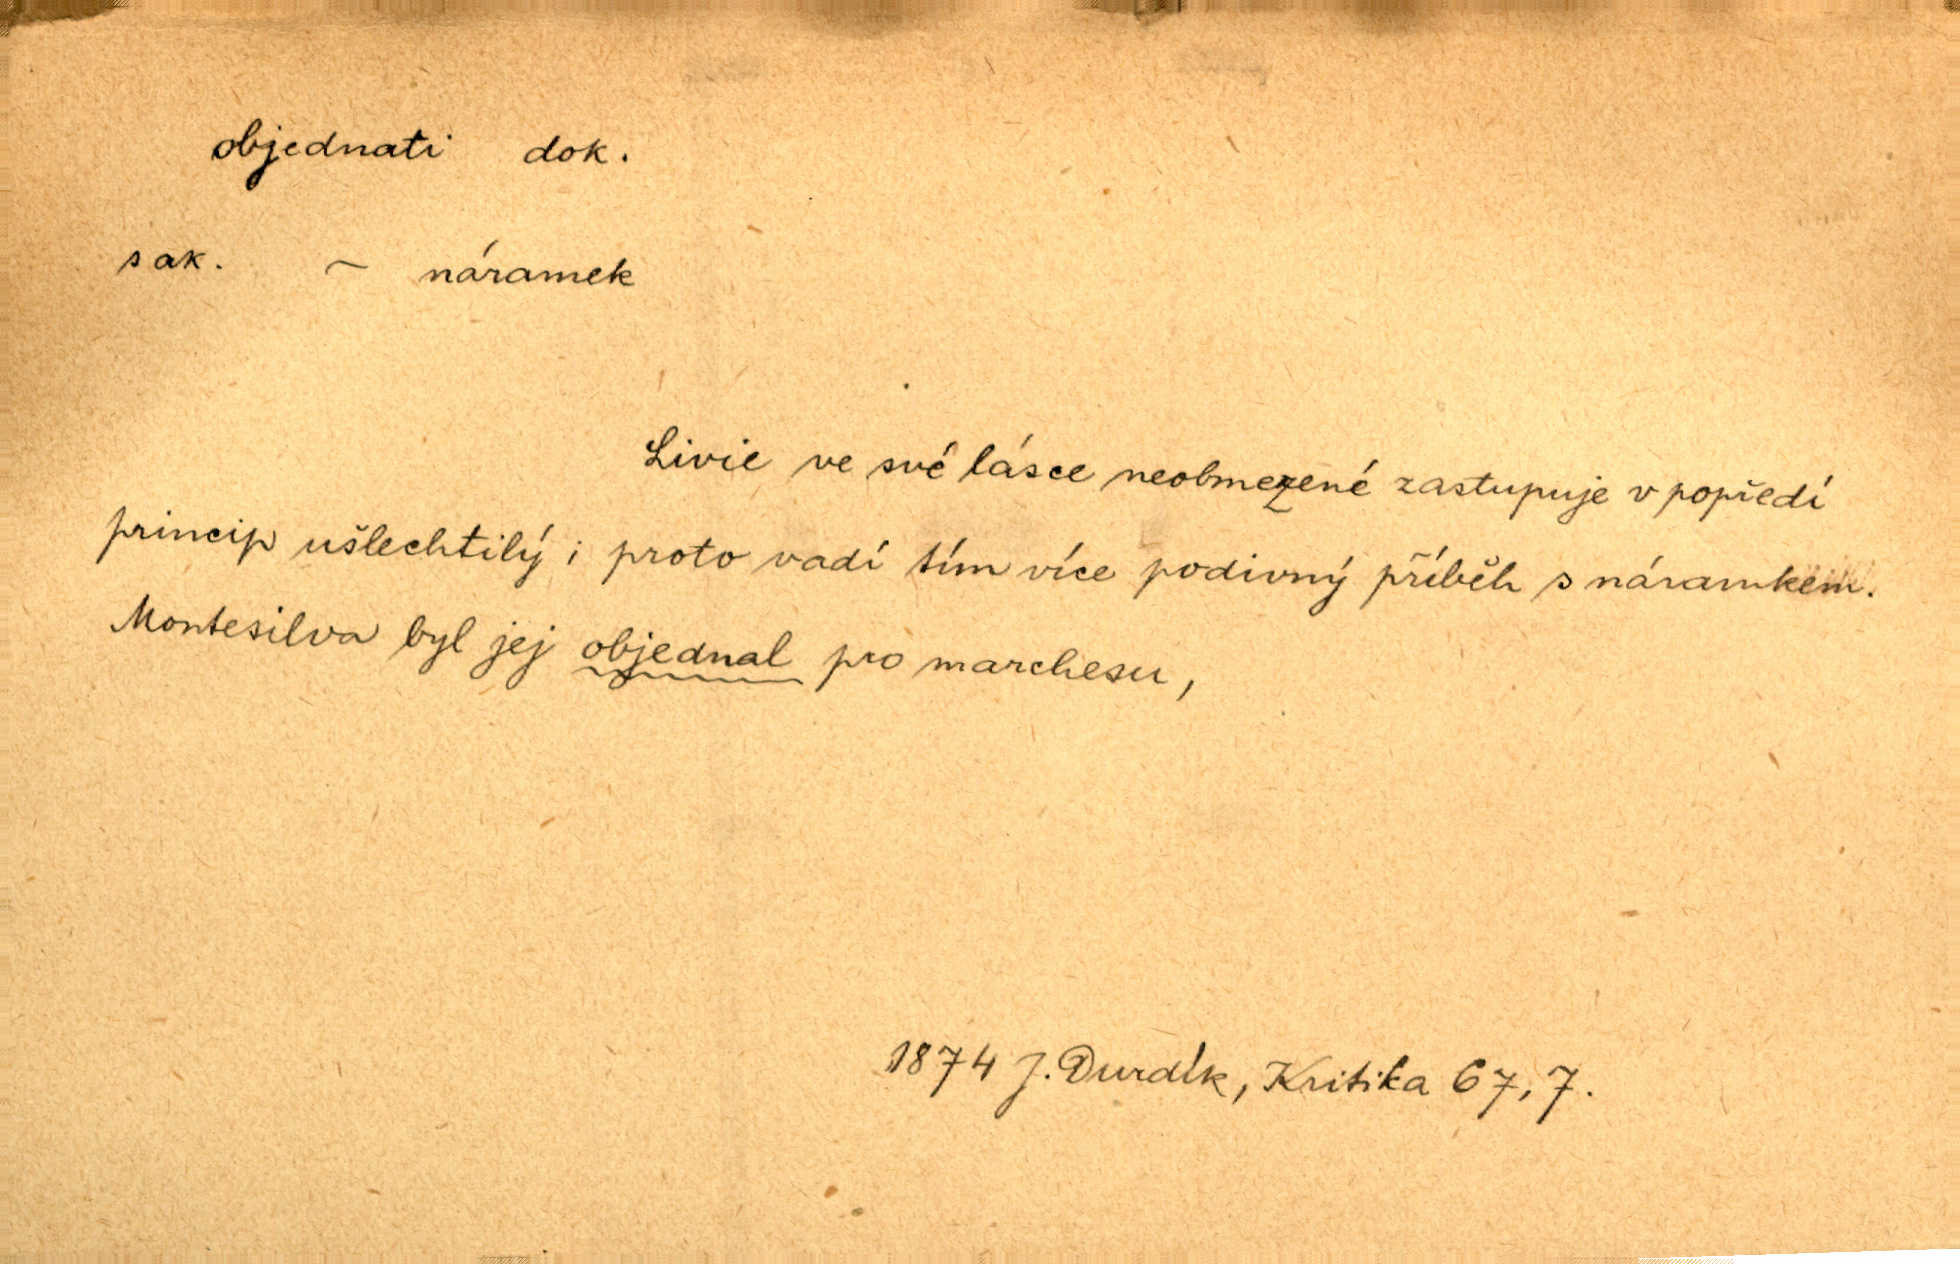 objednati dok.
sak. ~ náramek
Livie ve své lásce neobmezené zastupuje v popředí
princip ušlechtilý i proto vadí tím více podivný příběh s náramkem.
Montesilva byl jej objednal pro marchesu,
1874 J. Durdík, Kritika 67, 7.